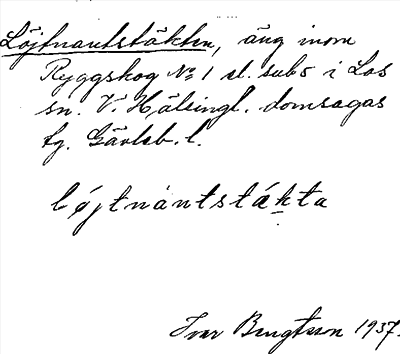 Löjtnantstäkten, äng inom
Ryggskog No 1 el. sub 5 i Los
sn. V. Hälsingl. domsagas
tg. Gävleb. l.
löjtnàntstákta
Ivar Bengtsson 1937.